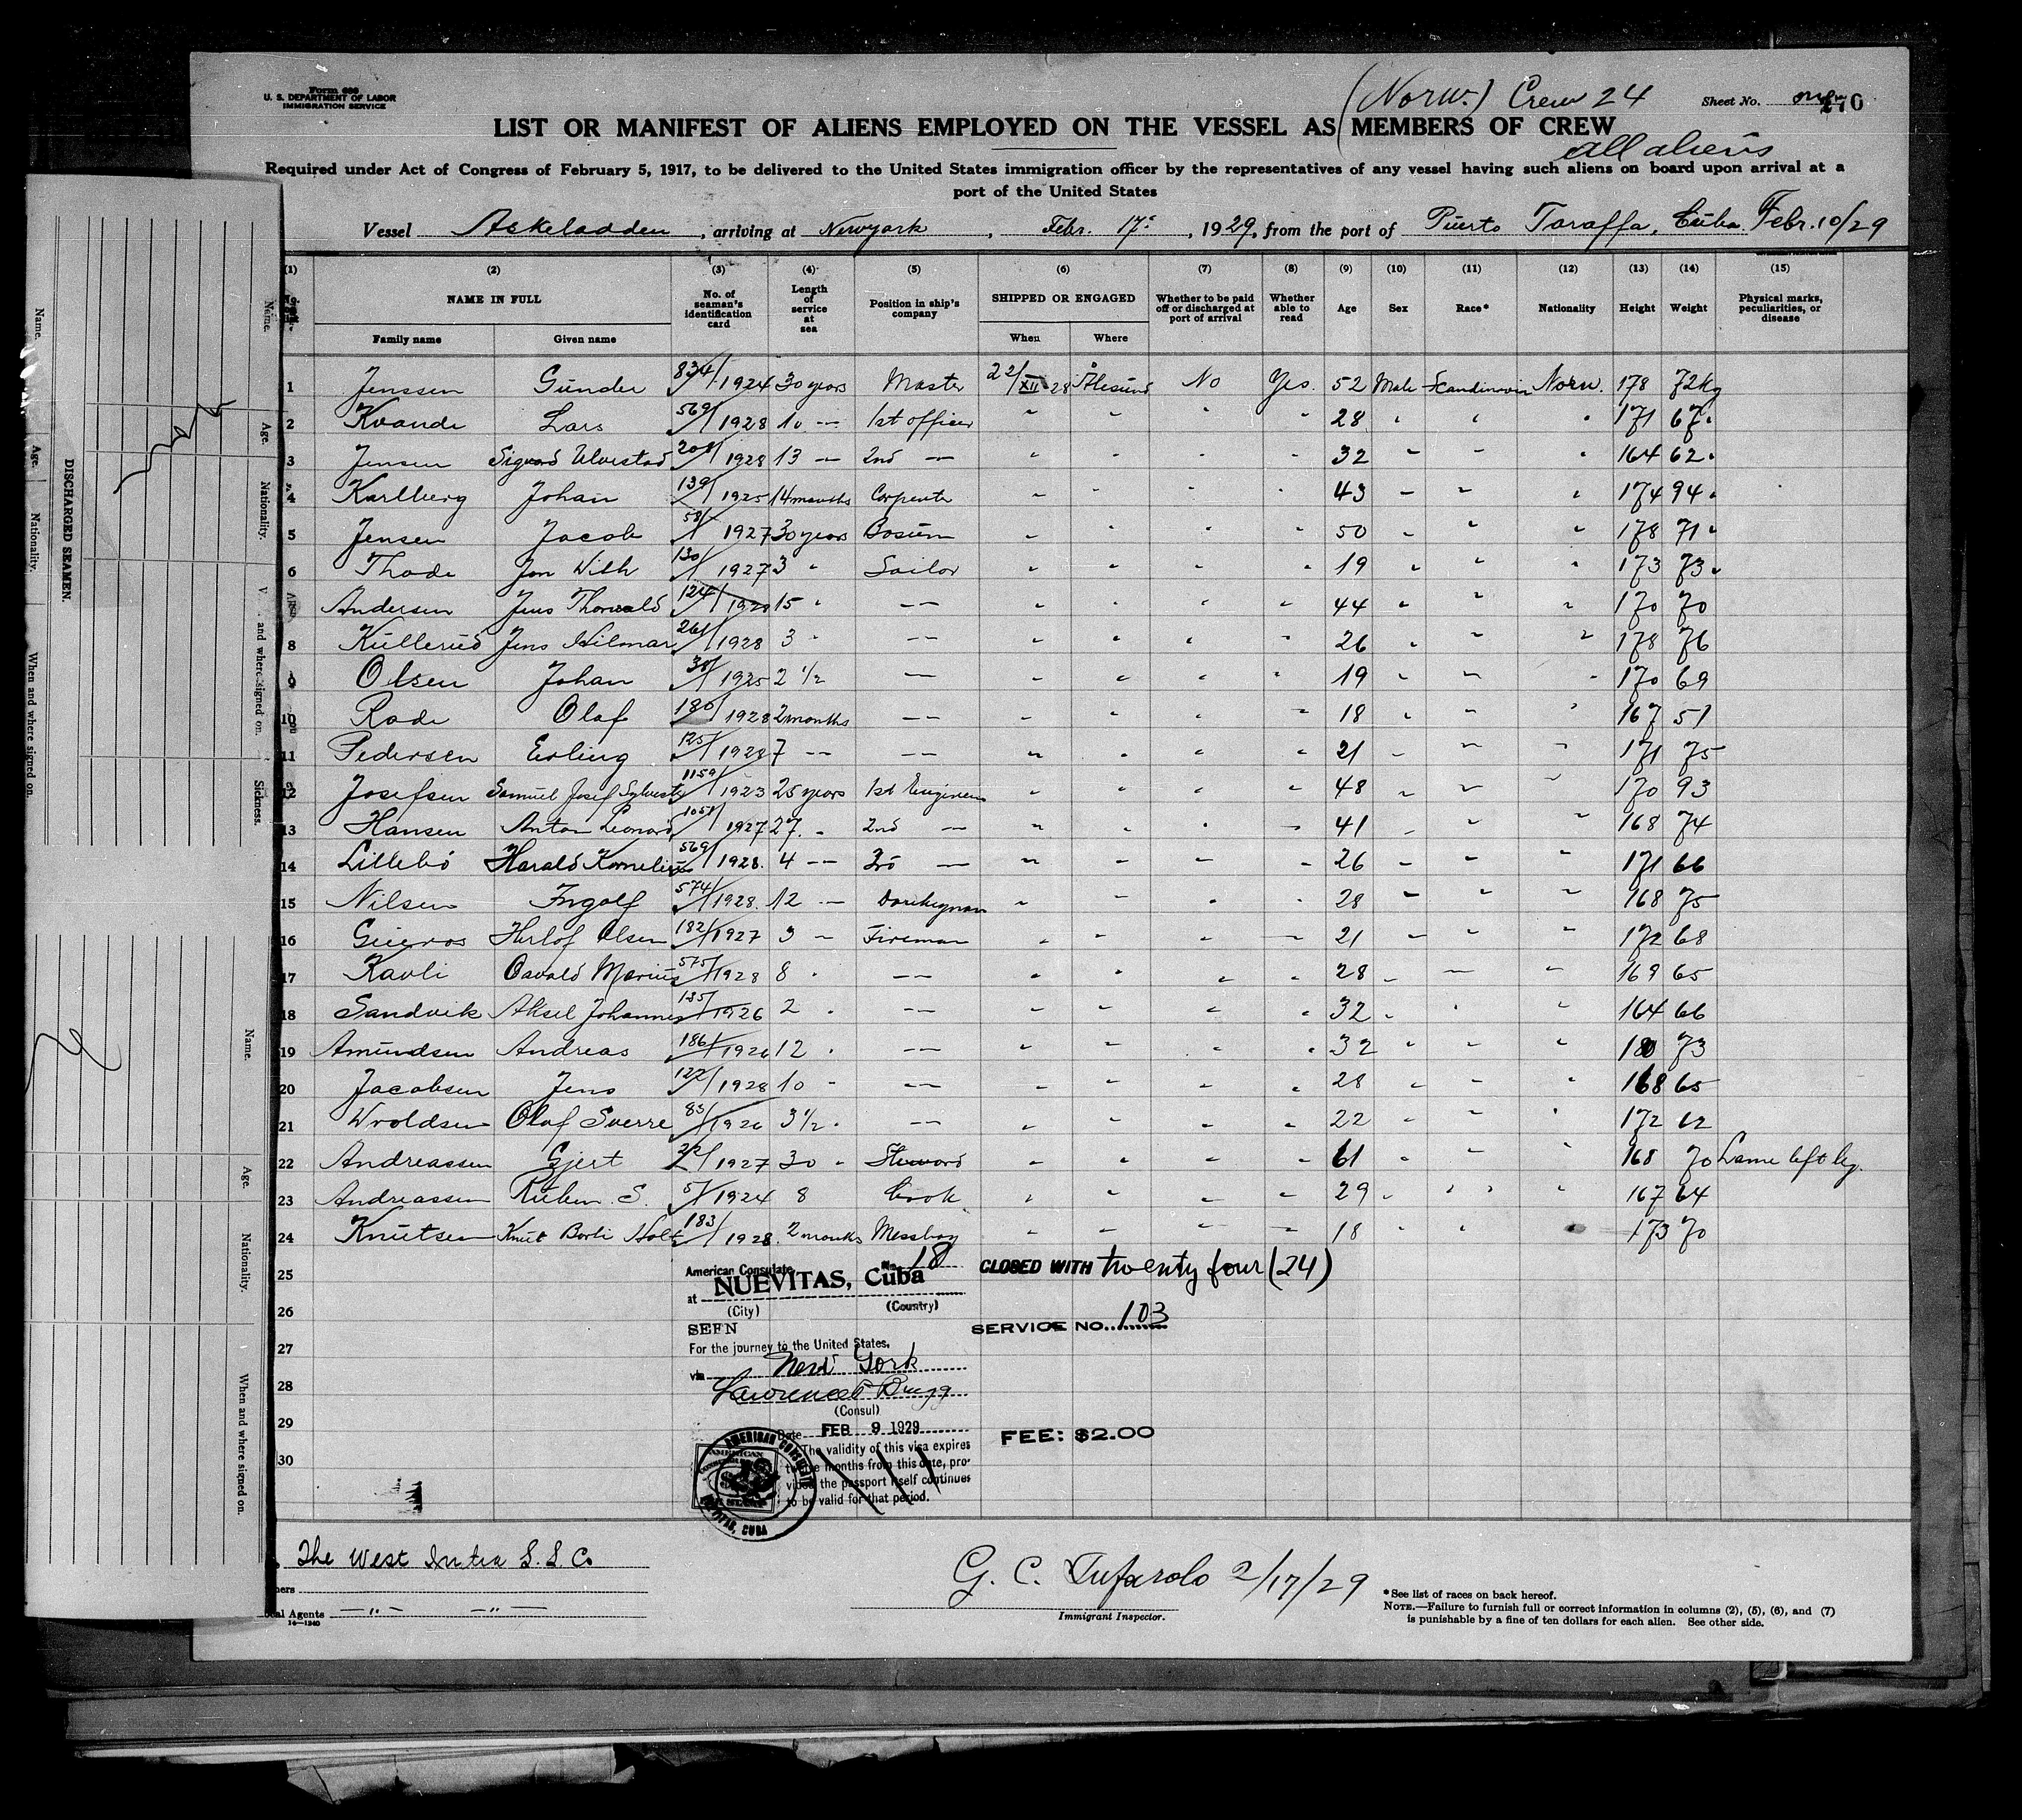 Form 680
U. S. DEPARTMENT OF LABOR
IMMIGRATION SERVICE
(Norw.) Crew 24
Sheet No. 270
LIST OR MANIFEST OF ALIENS EMPLOYED ON THE VESSEL AS MEMBERS OF CREW
all aliens
Required under Act of Congress of February 5, 1917, to be delivered to the United States immigration officer by the representatives of any vessel having such aliens on board upon arrival at a
port of the United States
Vessel Askeladden, arriving at Newyork, Febr. 17, 1929, from the port of Puerto Taraffa, Cuba. Febr. 10/29
(1) (2) (3) (4) (5) (6) (7) (8) (9) (10) (11) (12) (13) (14) (15)
NAME IN FULL No. of seaman's identification card Length of service at sea Position in ship's company SHIPPED OR ENGAGED Whether to be paid off or discharged at port of arrival Whether able to read Age Sex Race* Nationality Height Weight Physical marks, peculiarities, or disease
Family name Given name When Where
1 Jenssen Gunder 834/1924 30 years Master 22/XII 28 Ålesund No Yes. 52 Male Scandinavia Norw. 178 72kg
2 Kvande Lars 569/1928 10 — 1st officer " " " " 28 " " " 171 67 "
3 Jensen Sigvard Ulvestad 208/1928 13 — 2nd — " " " " 32 " " " 164 62 "
4 Karlberg Johan 139/1925 14 months Carpenter " " " " 43 " " " 174 94 "
5 Jensen Jacob 58/1927 30 years Bosun " " " " 50 " " " 178 71 "
6 Thode Jon Wilh 130/1927 3 " Sailor " " " " 19 " " " 173 73 "
Andersen Jens Thorvald 124/1920 15 " — — " " " " 44 " " " 170 70
8 Kullerud Jens Hilmar 261/1928 3 " — — " " " " 26 " " " 178 76
9 Olsen Johan 38/1925 2 1/2 — — " " " " 19 " " " 170 69
10 Rode Olaf 180/1928 2 months — — " " " " 18 " " " 167 51
11 Pedersen Erling 125/1928 7 — — — " " " " 21 " " " 171 75
12 Josefsen Samuel Josef Sylvest 1159/1923 25 years 1st Engineer " " " " 48 " " " 170 93
13 Hansen Anton Leonard 1051/1927 27 " 2nd — " " " " 41 " " " 168 74
14 Lillebö Harald Kornelius 569/1928. 4 — 3rd — " " " " 26 " " " 171 66
15 Nilsen Ingolf 574/1928. 12 — Donkeyman " " " " 28 " " " 168 75
16 Herlof Olsen 182/1927 3 — Fireman " " " " 21 " " " 172 68
17 Kavli Osvald Marius 575/1928 8 " — — " " " " 28 " " " 169 65
18 Sandvik Aksel Johannes 135/1926 2 " — — " " " " 32 " " " 164 66
19 Amundsen Andreas 186/1926 12 " — — " " " " 32 " " " 180 73
20 Jacobsen Jens 122/1928 10 " — — " " " " 28 " " " 168 65
21 Wroldsen Olaf Sverre 83/1926 3 1/2 " — — " " " " 22 " " " 172 62
22 Andreassen Gjert 22/1927 30 " Steward " " " " 61 " " " 168 70 Lame left leg.
23 Andreassen Ruben S. 5/1924 8 Cook " " " " 29 " " " 167 64
24 Knutsen Knut Borti Holt 183/1928. 2 months Messboy " " " " 18 " " 173 70
25
26
27
28
29
30
American Consulate No. 18
at NUEVITAS, Cuba
(City) (Country)
SEEN
For the journey to the United States.
via New York
(Consul)
Date FEB 9 1929
The validity of this visa expires
twelve months from this date, pro-
vided the passport itself continues
to be valid for that period.
AMERICAN CONSULATE
NUEVITAS, CUBA
CLOSED WITH twenty four (24)
SERVICE NO. 103
FEE: $2.00
The West India S.S. Co
Owners
Local Agents — " — — " —
14—1240
G. C. Tufarolo 2/17/29
Immigrant Inspector.
*See list of races on back hereof.
NOTE.—Failure to furnish full or correct information in columns (2), (5), (6), and (7)
is punishable by a fine of ten dollars for each alien. See other side.
DISCHARGED SEAMEN.
Name. Age. Nationality. When and where signed on.
Name. Age. Nationality. and where signed on. Sickness.
Name. Age. Nationality. When and where signed on.